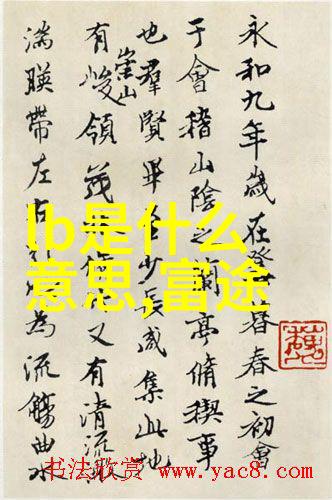 永和九年歲在癸丑暮春之初會
于會稽山陰之蘭亭脩稧事
也羣賢畢少長咸集此地
有崇山峻領茂又有清流激
湍暎帶左右為流觴曲水
lb是什么
意思,富途
书法欣赏 www.yac8.com